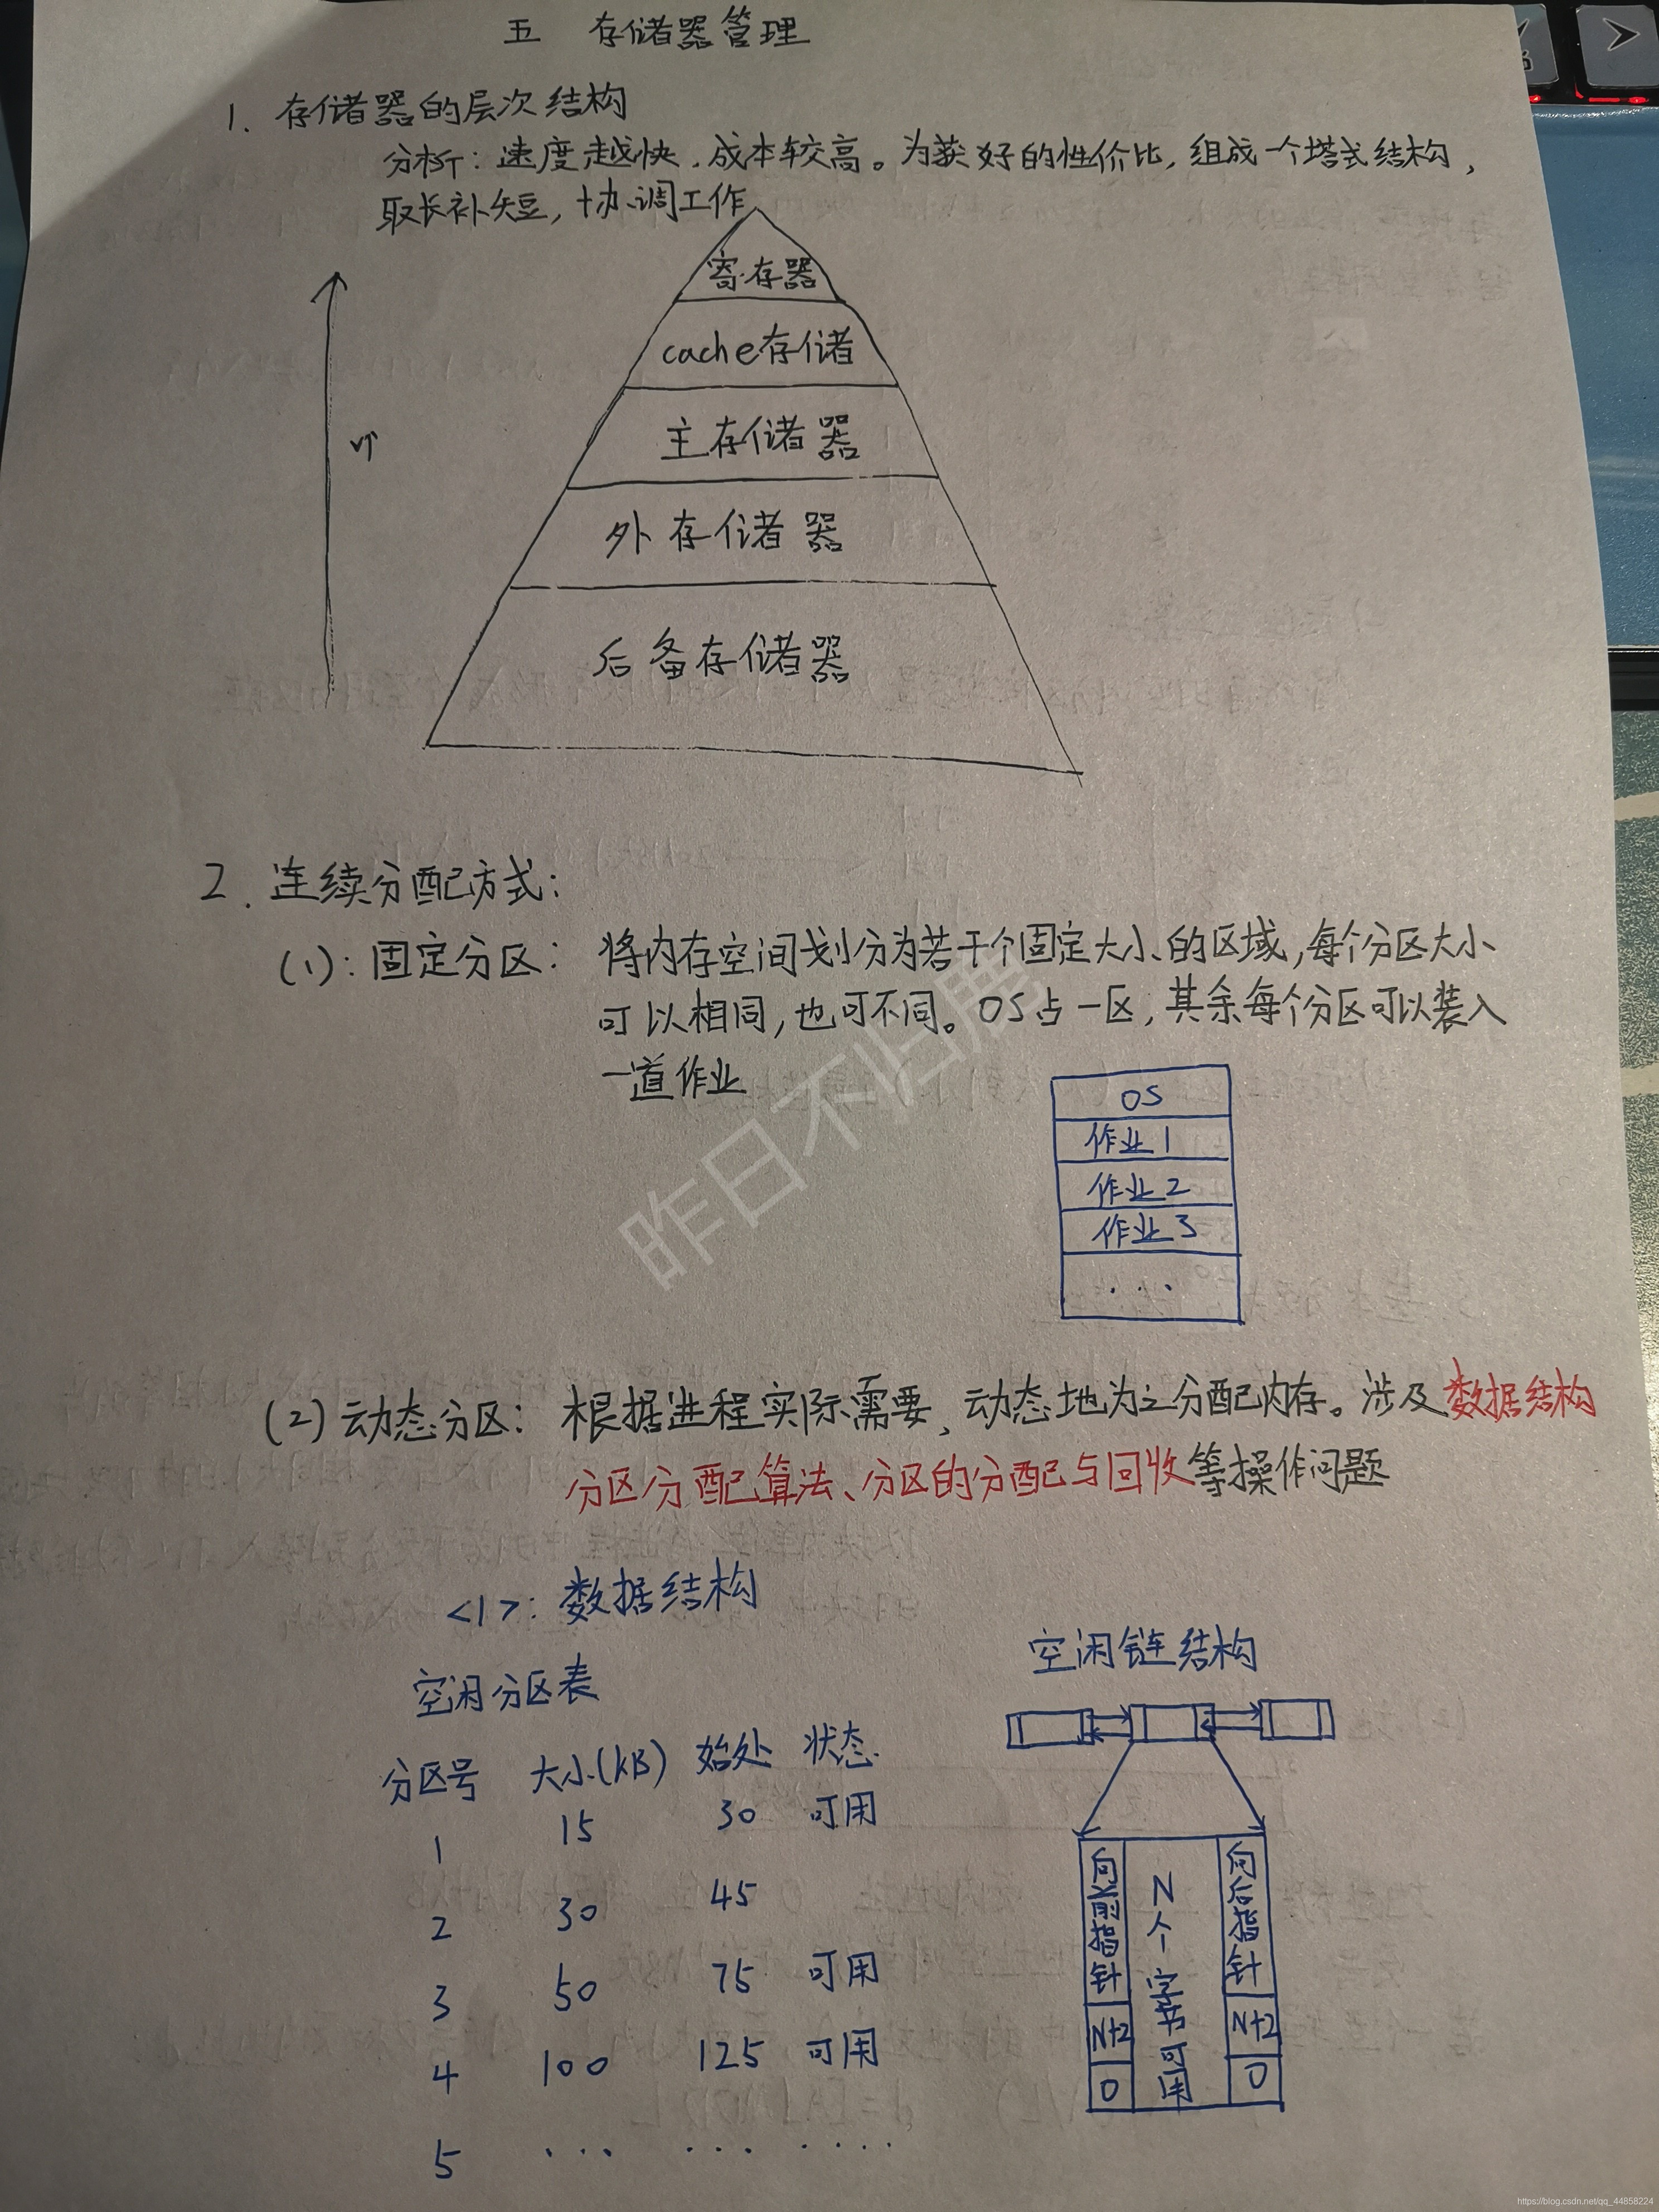 五 存储器管理
1. 存储器的层次结构
分析：速度越快，成本较高。为获好的性价比，组成一个塔式结构，
取长补短，协调工作
寄存器
cache存储
主存储器
外存储器
后备存储器
2. 连续分配方式：
(1)：固定分区： 将内存空间划分为若干个固定大小的区域，每个分区大小
可以相同，也可不同。OS占一区，其余每个分区可以装入
一道作业
OS
作业1
作业2
作业3
...
(2) 动态分区： 根据进程实际需要、动态地为之分配内存。涉及数据结构
分区分配算法、分区的分配与回收等操作问题
<1>：数据结构
空闲分区表
分区号 大小(KB) 始处 状态
1 15 30 可用
2 30 45
3 50 75 可用
4 100 125 可用
5 ... ... ....
空闲链结构
向前指针 N个字节可用 向后指针
N+2 N+2
0 0
昨日不归居
https://blog.csdn.net/qq_44858224